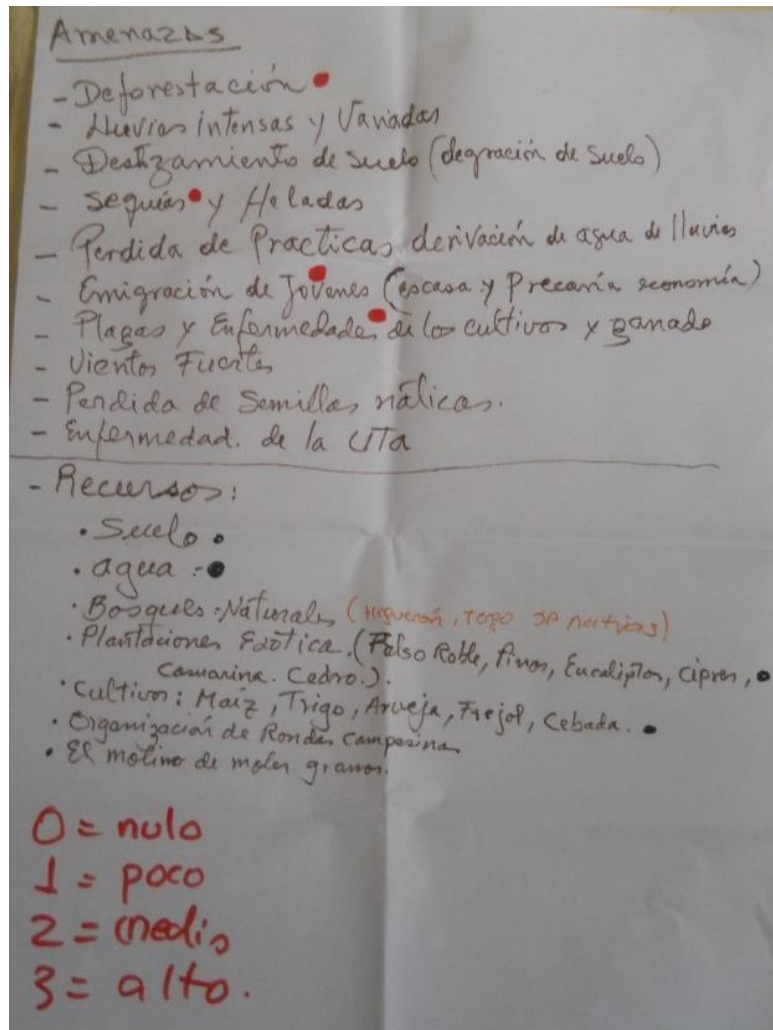 Amenazas
- Deforestación
- Lluvias intensas y Variadas
- Deslizamiento de suelo (degración de suelo)
- sequias y Heladas
- Perdida de Practicas derivación de agua de lluvias
- Emigración de Jovenes (escasa y Precaria economía)
- Plagas y Enfermedades de los cultivos y ganado
- Vientos Fuertes
- Perdida de Semillas náticas.
- Enfermedad. de la UTA
- Recursos:
• Suelo
• agua :
• Bosques Naturales (Higuerón, sp nativas)
• Plantaciones Exótica. (Falso Roble, Pinos, Eucaliptos, cipres,
Casuarina. Cedro.).
• Cultivos: Maíz, Trigo, Arveja, Frejol, Cebada.
• Organización de Rondas Campesina
• El molino de moler granos.
0 = nulo
1 = poco
2 = medio
3 = alto.